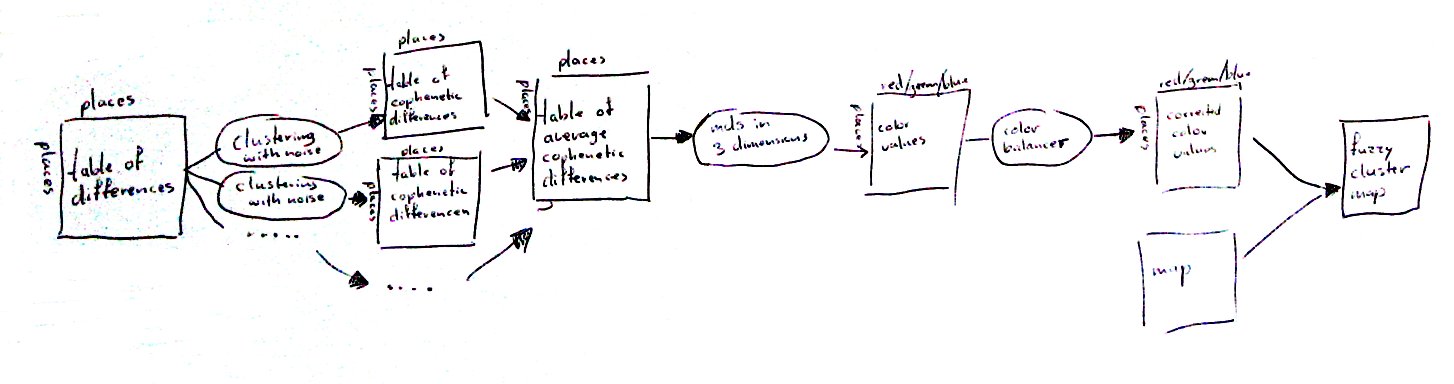 places
places
table of
differences
clustering
with noise
clustering
with noise
.....
places
places
table of
cophenetic
differences
places
places
table of
cophenetic
differencen
....
places
places
table of
average
cophenetic
differences
mds in
3 dimensions
red/green/blue
places
color
values
color
balancer
red/green/blue
places
corrected
color
values
map
fuzzy
cluster
map